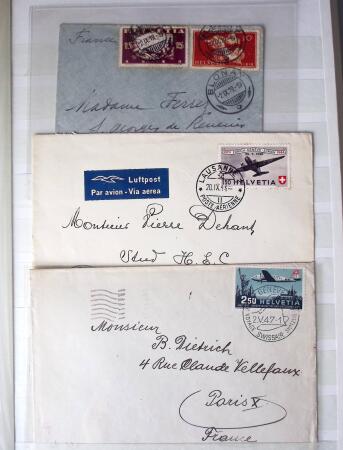 France
HELVETIA
HELVETIA
BLONAY
Madame Ferrer
S. Georges de Reneins
Luftpost
Par avion - Via aerea
LAUSANNE
20.IX.43
POSTE AÉRIENNE
HELVETIA
Monsieur Pierre Dehant
Stud H.E.C
GENÈVE
2.50 HELVETIA
2.V.47-17
SWISSAIR
Monsieur
B. Dietrich
4 Rue Claude Vellefaux
Paris X
France